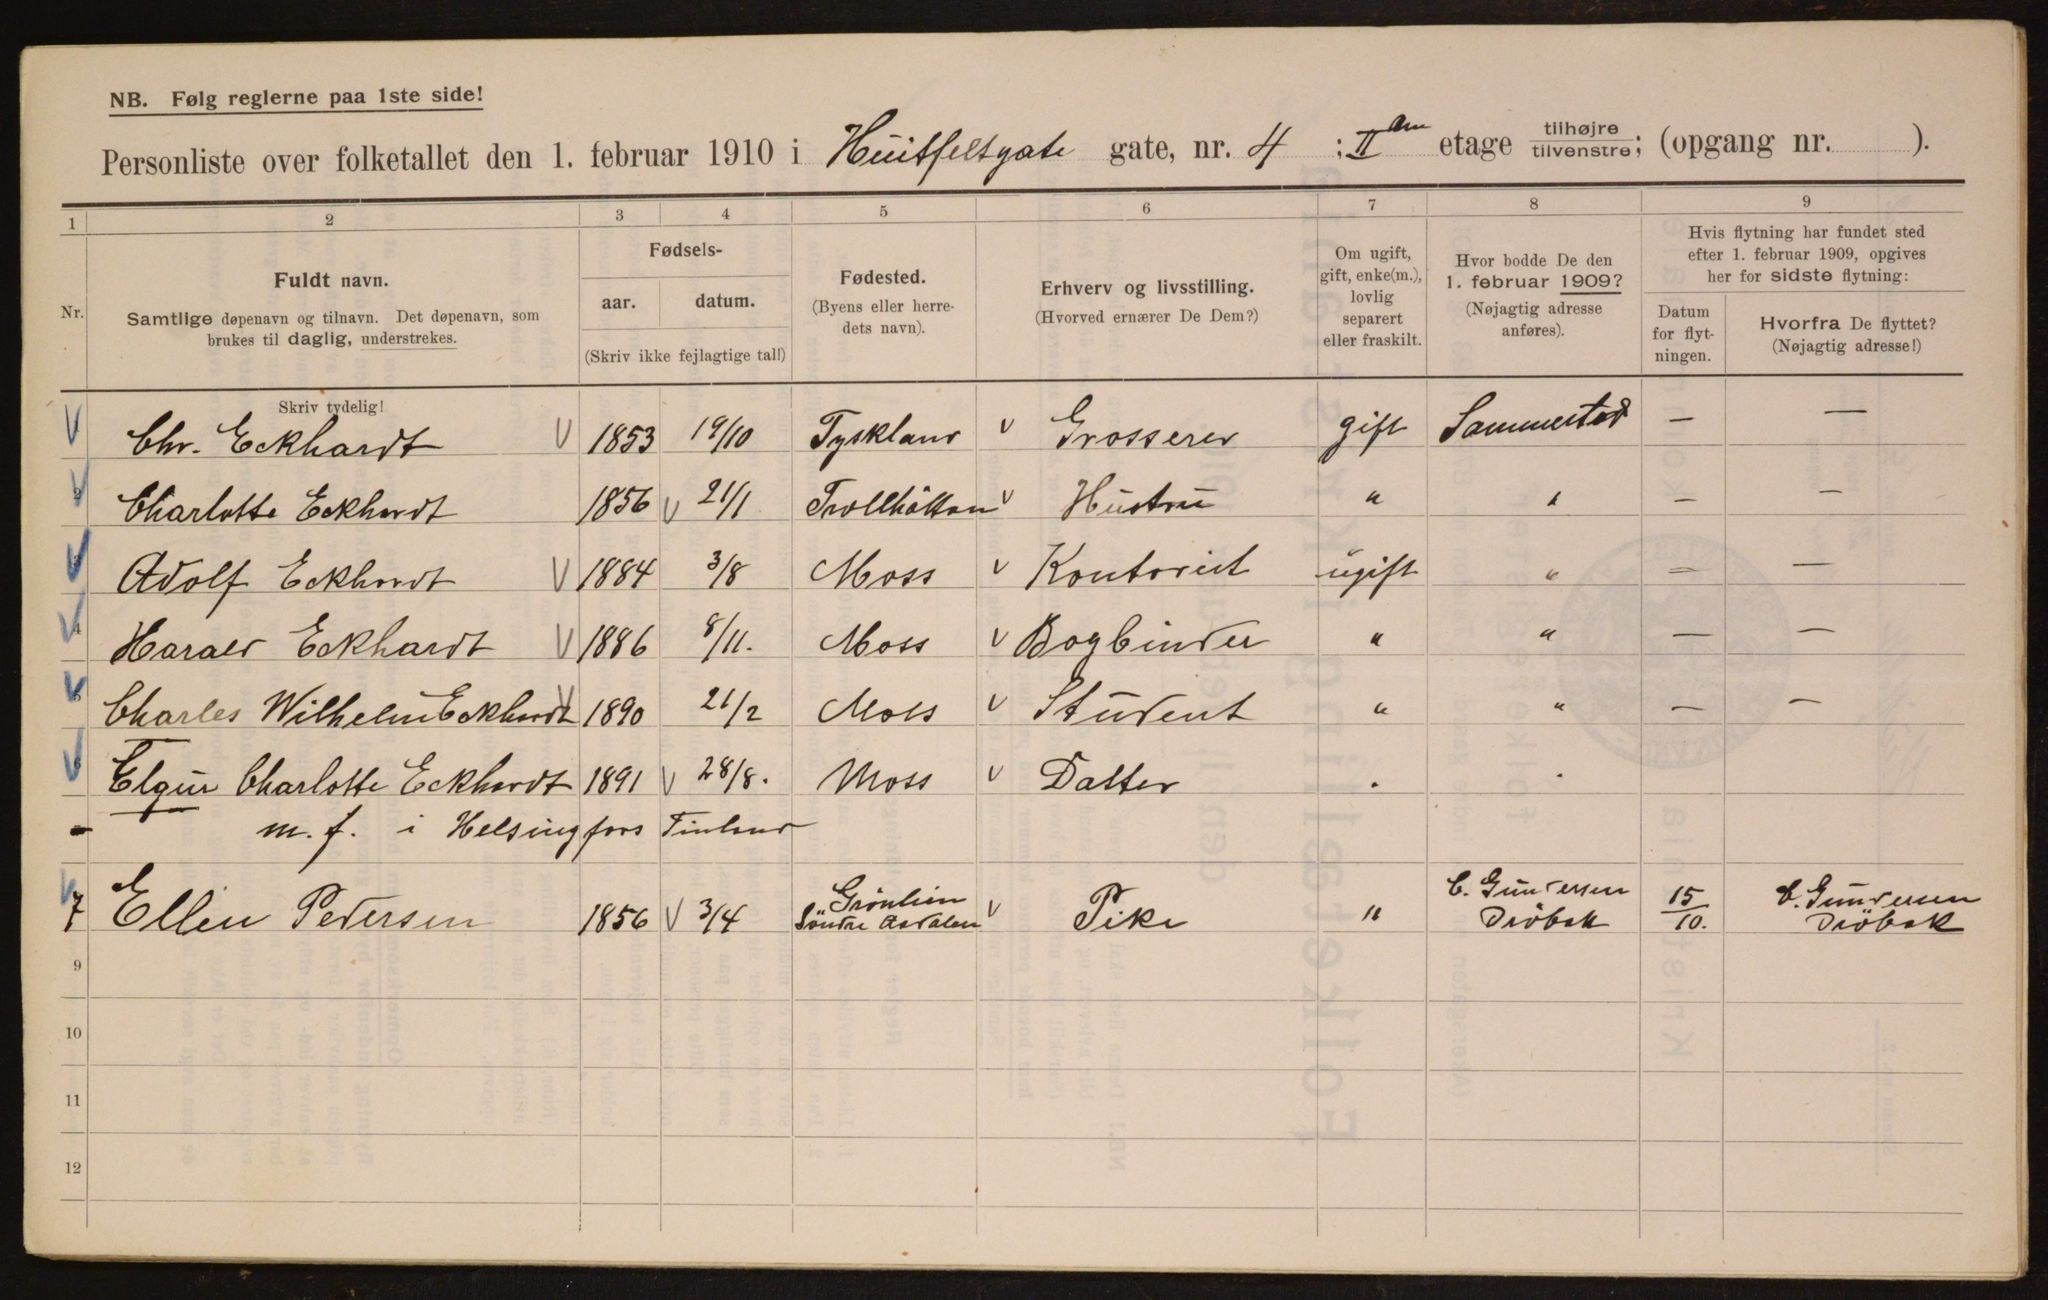 NB. Følg reglerne paa 1ste side!
Personliste over folketallet den 1. februar 1910 i Huitfeltsgate gate, nr. 4 ; II etage tilhøjre tilvenstre; (opgang nr. ).
1 2 3 4 5 6 7 8 9
Nr.
Fuldt navn.
Samtlige døpenavn og tilnavn. Det døpenavn, som
brukes til daglig, understrekes.
Skriv tydelig!
Fødsels-
aar. datum.
(Skriv ikke fejlagtige tal!)
Fødested.
(Byens eller herre-
dets navn).
Erhverv og livsstilling.
(Hvorved ernærer De Dem?)
Om ugift,
gift, enke(m.),
lovlig
separert
eller fraskilt.
Hvor bodde De den
1. februar 1909?
(Nøjagtig adresse
anføres).
Hvis flytning har fundet sted
efter 1. februar 1909, opgives
her for sidste flytning:
Datum
for flyt-
ningen.
Hvorfra De flyttet?
(Nøjagtig adresse!)
Chr. Eckhardt 1853 19/10 Tyskland Grosserer gift Sammested — —
2 Charlotte Eckhardt 1856 21/1 Trollhättan Hustru " " — —
3 Adolf Eckhardt 1884 3/8 Moss Kontorist ugift " — —
4 Harald Eckhardt 1886 8/11. Moss Bogbinder " " — —
5 Charles Wilhelm Eckhardt 1890 21/2 Moss Student " " — —
6 Charlotte Eckhardt 1891 28/8. Moss Datter
m. f. i Helsingfors Finland
7 Ellen Pedersen 1856 3/4 Grönlien Söndre Pike " C. Gundersen Dröbak 15/10. C. Gundersen Dröbak
9
10
11
12